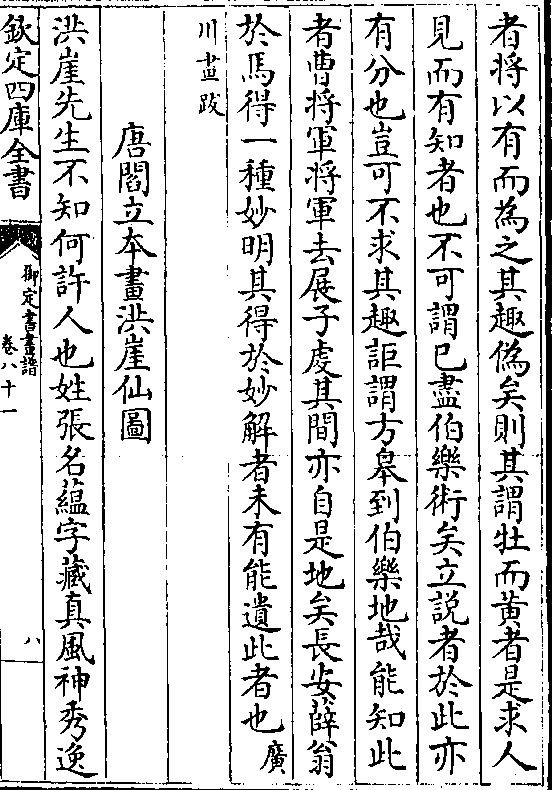 者將以有而為之其趣偽矣則其謂牡而黃者是求人
見而有知者也不可謂已盡伯樂術矣立說者於此亦
有分也豈可不求其趣詎謂方皋到伯樂地哉能知此
者曹將軍將軍去展子虔其間亦自是地矣長安薛翁
於馬得一種妙明其得於妙解者未有能遺此者也廣
川畫跋
唐閻立本畫洪崖仙圖
洪崖先生不知何許人也姓張名蘊字藏真風神秀逸
欽定四庫全書
御定書畫譜
卷八十一
八